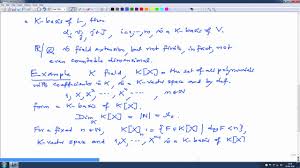 a K-basis of L, then
αᵢ vⱼ, j∈J, i=1,…,n, is a K-basis of V.
R/Q is field extension but not finite, in fact, not
even countable dimensional.
Example K field, K[X] = the set of all polynomials
with coefficients in K, is a K-vector space and by def.
1, X, X², …, Xⁿ, … n∈N
form a K-basis of K[X]
Dim_K K[X] = |N| = ℵ₀.
For a fixed n∈N, K[X]ₙ := {F∈K[X] | deg F < n},
K-vector space and 1, X, …, Xⁿ⁻¹ is a K-basis of K[X]ₙ